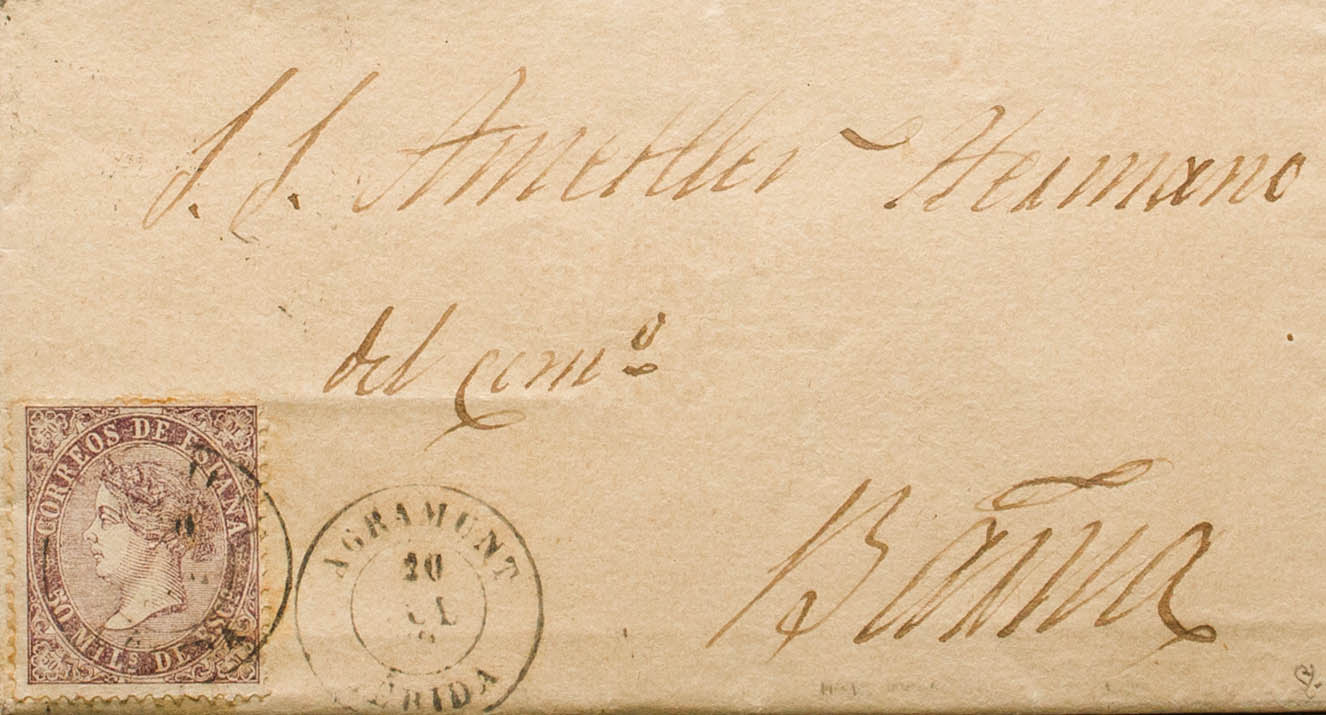 S. S. Ametller Hermano
del Com.º
Bãrna
CORREOS DE ESPAÑA
50 MIL.s DE ESCUDO
AGRAMUNT
20
JUL
LERIDA